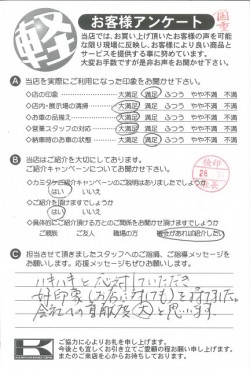 軽
お客様アンケート
当店では、お買い上げ頂いたお客様の声を可能
な限り現場に反映し、お客様により良い商品と
サービスを提供する事に努めています。
大変お手数ですが是非お声をお聞かせ下さい。
A 当店を実際にご利用になった印象をお聞かせ下さい。
◇店の印象 大満足 満足 ふつう やや不満 不満
◇店内・展示場の清掃 大満足 満足 ふつう やや不満 不満
◇お車の品揃え 大満足 満足 ふつう やや不満 不満
◇営業スタッフの対応 大満足 満足 ふつう やや不満 不満
◇納車時のお車の状態 大満足 満足 ふつう やや不満 不満
B 当店はご紹介を大切にしております。
ご紹介キャンペーンについてお聞かせ下さい。
◇カミタケ紹介キャンペーンのご説明はありましたでしょうか
はい いいえ
◇ご紹介キャンペーンにご協力をお願い出来ますでしょうか
はい いいえ
◇具体的にご紹介頂ける方とのご関係をお聞かせ頂けますでしょうか
ご親族 ご友人 職場の方 機会があれば紹介したい
検印
28
C 担当させて頂きましたスタッフへのご指摘、ご指導メッセージを
お願いします。応援メッセージもぜひお願いします。
ハキハキと応対していただき
好印象(お店に対しても)を持てました。
会社への貢献度(大)と思います。
K
ご協力に心よりお礼を申し上げます。
今後とも宜しくお引き立てご愛顧の程お願い申し上げます。
またのご来店を心からお待ちしております。